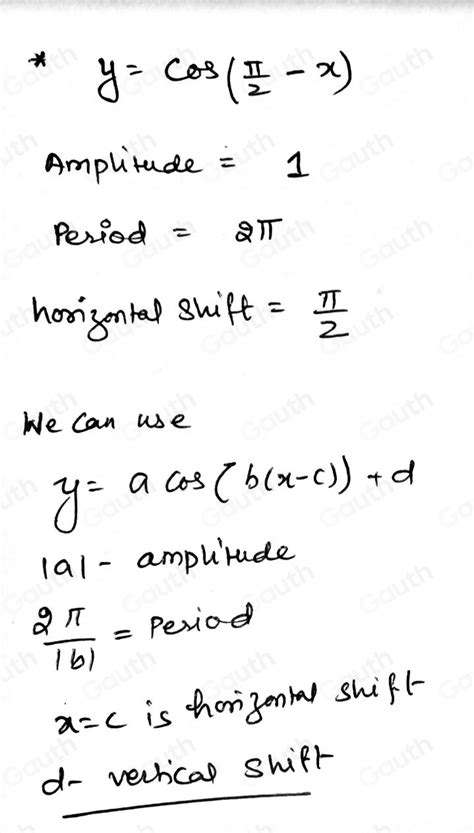 * y = cos(π/2 - x)
Amplitude = 1
Period = 2π
horizontal shift = π/2
We can use
y = a cos(b(x-c)) + d
|a| - amplitude
2π/|b| = Period
x=c is horizontal shift
d- vertical shift